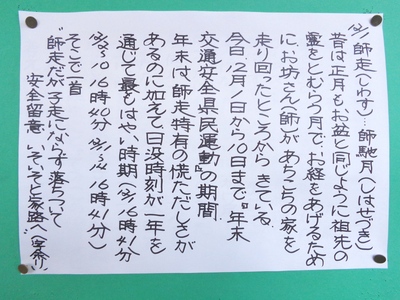 12/1 師走(しわす)…師馳月(しはせづき)
昔は正月もお盆と同じように祖先の
霊をとむらう月で、お経をあげるため
に、お坊さん(師)があちこちの家を
走り回ったところから きている。
今日12月1日から10日まで『年末
交通安全県民運動』の期間
年末は、師走特有の慌ただしさが
あるのに加えて、日没時刻が一年を
通じて最もはやい時期(12/1 16時41分
12/2~10 16時40分 12/3~14 16時41分)
そこで一首
"師走だが 子走にならず 落ちついて
安全留意 いそいそと家路へ(字余り)"